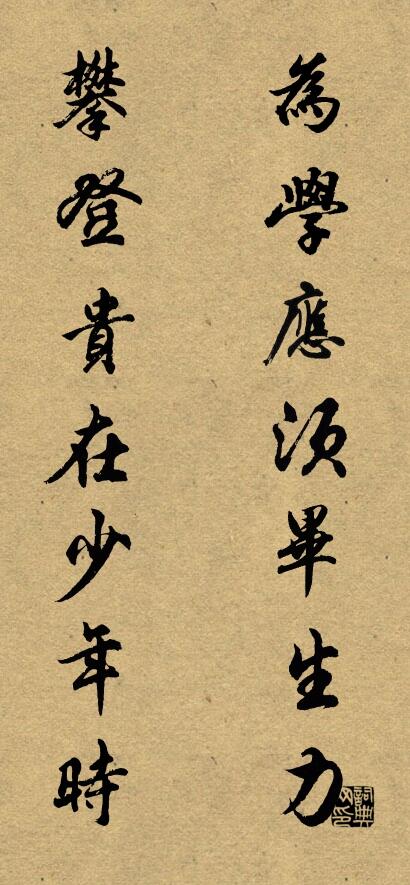 為學應須畢生力
攀登貴在少年時
詞典